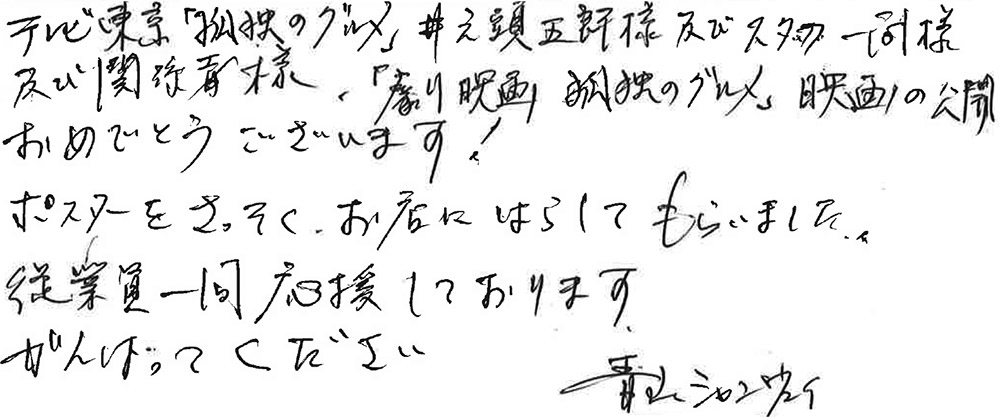 テレビ東京「孤独のグルメ」井之頭五郎様 及び スタッフ一同様
及び関係者様、「劇映画 孤独のグルメ」映画の公開
おめでとうございます!
ポスターをさっそく、お店にはらしてもらいました。
従業員一同応援しております
がんばってください
青山シャンウェイ